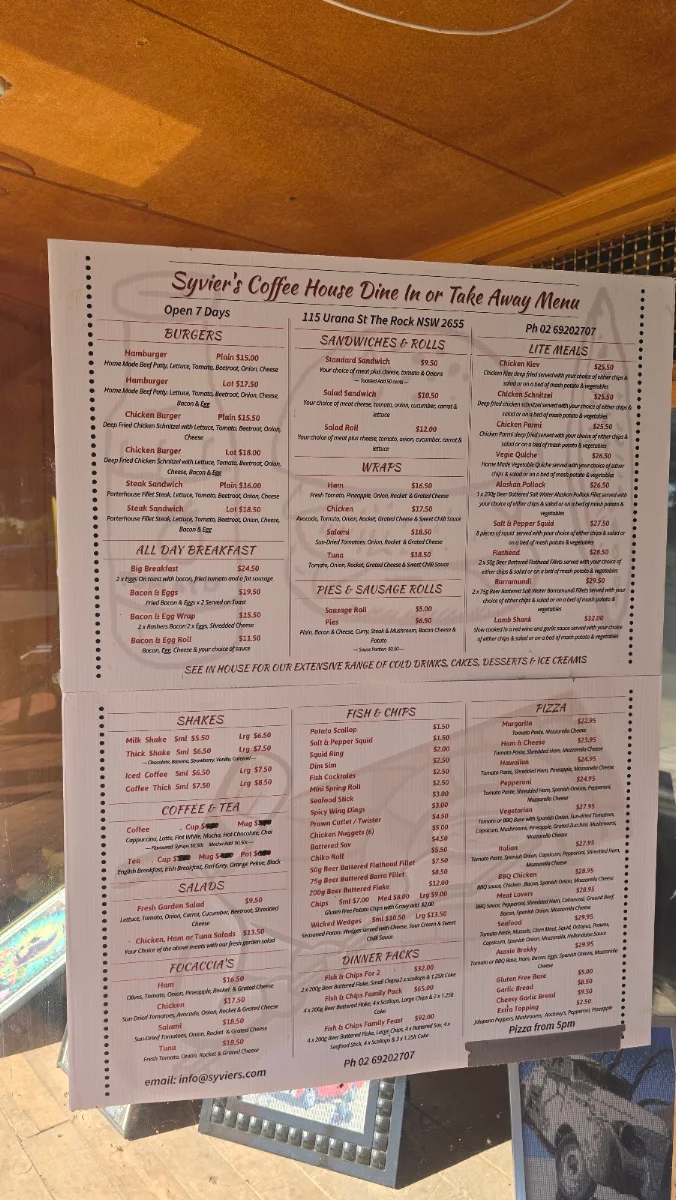 Syvier's Coffee House Dine In or Take Away Menu
Open 7 Days
115 Urana St The Rock NSW 2655
Ph 02 69202707
BURGERS
Hamburger Plain $15.00
Home Made Beef Patty, Lettuce, Tomato, Beetroot, Onion, Cheese
Hamburger Lot $17.50
Home Made Beef Patty, Lettuce, Tomato, Beetroot, Onion, Cheese,
Bacon & Egg
Chicken Burger Plain $15.50
Deep Fried Chicken Schnitzel with Lettuce, Tomato, Beetroot, Onion,
Cheese
Chicken Burger Lot $18.00
Deep Fried Chicken Schnitzel with Lettuce, Tomato, Beetroot, Onion,
Cheese, Bacon & Egg
Steak Sandwich Plain $16.00
Porterhouse Fillet Steak, Lettuce, Tomato, Beetroot, Onion, Cheese
Steak Sandwich Lot $18.50
Porterhouse Fillet Steak, Lettuce, Tomato, Beetroot, Onion, Cheese,
Bacon & Egg
ALL DAY BREAKFAST
Big Breakfast $24.50
2 x Eggs On toast with bacon, fried tomato and a fat sausage
Bacon & Eggs $19.50
Fried Bacon & Eggs x 2 Served on Toast
Bacon & Egg Wrap $15.50
2 x Rashers Bacon 2 x Eggs, Shredded Cheese
Bacon & Egg Roll $11.50
Bacon, Egg, Cheese & your choice of sauce
SANDWICHES & ROLLS
Standard Sandwich $9.50
Your choice of meat plus cheese, tomato & Onions
— Toasted Add 50 cents —
Salad Sandwich $10.50
Your choice of meat cheese, tomato, onion, cucumber, carrot &
lettuce
Salad Roll $12.00
Your choice of meat plus cheese, tomato, onion, cucumber, carrot &
lettuce
WRAPS
Ham $16.50
Fresh Tomato, Pineapple, Onion, Rocket & Grated Cheese
Chicken $17.50
Avocado, Tomato, Onion, Rocket, Grated Cheese & Sweet Chili Sauce
Salami $18.50
Sun-Dried Tomatoes, Onion, Rocket, & Grated Cheese
Tuna $18.50
Tomato, Onion, Rocket, Grated Cheese & Sweet Chili Sauce
PIES & SAUSAGE ROLLS
Sausage Roll $5.00
Pies $6.50
Plain, Bacon & Cheese, Curry, Steak & Mushroom, Bacon Cheese &
Potato
— Sauce Portion $0.50 —
LITE MEALS
Chicken Kiev $25.50
Chicken Kiev deep fried served with your choice of either chips &
salad or on a bed of mash potato & vegetables
Chicken Schnitzel $25.50
Deep fried chicken schnitzel served with your choice of either chips &
salad or on a bed of mash potato & vegetables
Chicken Parmi $25.50
Chicken Parmi deep fried served with your choice of either chips &
salad or on a bed of mash potato & vegetables
Vegie Quiche $26.50
Home Made Vegetable Quiche served with your choice of
either chips & salad or on a bed of mash potato & vegetables
Alaskan Pollock $26.50
1 x 200g Beer Battered Salt Water Alaskan Pollock Fillet served with
your choice of either chips & salad or on a bed of mash potato &
vegetables
Salt & Pepper Squid $27.50
8 pieces of squid served with your choice of either chips & salad or
on a bed of mash potato & vegetables
Flathead $28.50
2 x 50g Beer Battered Flathead Fillets served with your choice of
either chips & salad or on a bed of mash potato & vegetables
Barramundi $29.50
2 x 75g Beer Battered Salt Water Barramundi Fillets served with your
choice of either chips & salad or on a bed of mash potato &
vegetables
Lamb Shank $32.00
Slow cooked in a red wine and garlic sauce served with your choice
of either chips & salad or on a bed of mash potato & vegetables
SEE IN HOUSE FOR OUR EXTENSIVE RANGE OF COLD DRINKS, CAKES, DESSERTS & ICE CREAMS
SHAKES
Milk Shake Sml $5.50 Lrg $6.50
Thick Shake Sml $6.50 Lrg $7.50
— Chocolate, Banana, Strawberry, Vanilla, Caramel —
Iced Coffee Sml $6.50 Lrg $7.50
Coffee Thick Sml $7.50 Lrg $8.50
COFFEE & TEA
Coffee Cup Mug
Cappuccino, Latte, Flat White, Mocha, Hot Chocolate, Chai
— Flavoured Syrups $0.50c Mocha Add $0.50c —
Tea Cup Mug Pot
English Breakfast, Irish Breakfast, Earl Grey, Orange Pekoe, Black
SALADS
Fresh Garden Salad $9.50
Lettuce, Tomato, Onion, Carrot, Cucumber, Beetroot, Shredded
Cheese
Chicken, Ham or Tuna Salads $13.50
Your Choice of the above meats with our fresh garden salad
FOCACCIA'S
Ham $16.50
Olives, Tomato, Onion, Pineapple, Rocket & Grated Cheese
Chicken $17.50
Sun-Dried Tomatoes, Avocado, Onion, Rocket & Grated Cheese
Salami $18.50
Sun-Dried Tomatoes, Onion, Rocket, & Grated Cheese
Tuna $18.50
Fresh Tomato, Onion, Rocket & Grated Cheese
email: info@syviers.com
FISH & CHIPS
Potato Scallop $1.50
Salt & Pepper Squid $1.50
Squid Ring $2.00
Dim Sim $2.50
Fish Cocktales $2.50
Mini Spring Roll $2.50
Seafood Stick $3.00
Spicy Wing Dings $3.00
Prawn Cutlet / Twister $4.50
Chicken Nuggets (6) $5.00
Battered Sav $4.50
Chiko Roll $5.50
50g Beer Battered Flathead Fillet $7.50
75g Beer Battered Barra Fillet $8.50
200g Beer Battered Flake $12.00
Chips Sml $7.00 Med $8.00 Lrg $9.00
Gluten Free Potato Chips with Gravy add $2.00
Wicked Wedges Sml $10.50 Lrg $13.50
Seasoned Potato Wedges served with Cheese, Sour Cream & Sweet
Chili Sauce
DINNER PACKS
Fish & Chips For 2 $32.00
2 x 200g Beer Battered Flake, Small Chips 2 x Scallops & 1.25lt Coke
Fish & Chips Family Pack $65.00
4 x 200g Beer Battered Flake, 4 x Scallops, Large Chips & 2 x 1.25lt
Coke
Fish & Chips Family Feast $92.00
4 x 200g Beer Battered Flake, Large Chips, 4 x Battered Sav, 4 x
Seafood Stick, 4 x Scallops & 2 x 1.25lt Coke
Ph 02 69202707
PIZZA
Margarita $22.95
Tomato Paste, Mozzarella Cheese
Ham & Cheese $23.95
Tomato Paste, Shredded Ham, Mozzarella Cheese
Hawaiian $24.95
Tomato Paste, Shredded Ham, Pineapple, Mozzarella Cheese
Pepperoni $24.95
Tomato Paste, Shredded Ham, Spanish Onions, Pepperoni,
Mozzarella Cheese
Vegetarian $27.95
Tomato or BBQ Base with Spanish Onion, Sun-dried Tomatoes,
Capsicum, Mushrooms, Pineapple, Grated Zucchini, Mushrooms,
Mozzarella Cheese
Italian $27.95
Tomato Paste, Spanish Onion, Capsicum, Pepperoni, Shredded Ham,
Mozzarella Cheese
BBQ Chicken $28.95
BBQ sauce, Chicken, Bacon, Spanish Onion, Mozzarella Cheese
Meat Lovers $28.95
BBQ Sauce, Pepperoni, Shredded Ham, Cabanossi, Ground Beef
Bacon, Spanish Onion, Mozzarella Cheese
Seafood $29.95
Tomato Paste, Mussels, Clam Meat, Squid, Octopus, Prawns,
Capsicum, Spanish Onion, Mozzarella, Hollandaise Sauce
Aussie Brekky $29.95
Tomato or BBQ Base, Ham, Bacon, Eggs, Spanish Onions, Mozzarella
Cheese
Gluten Free Base $5.00
Garlic Bread $8.50
Cheesy Garlic Bread $9.50
Extra Topping $2.50
Jalapeno Peppers, Mushrooms, Anchovy's, Pepperoni, Pineapple
Pizza from 5pm